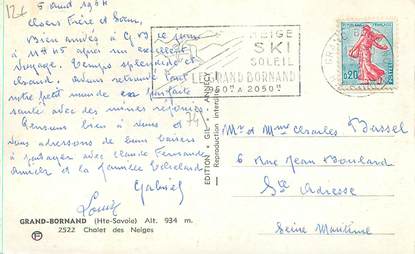 5 avril 1964
Chers Frère et Sœur,
Bien arrivés à G.B. ce jour
à 11 H 45 après un excellent
voyage. Temps splendide et
chaud. Avons retrouvé tout
notre petit monde en parfaite
santé avec des mines réjouies.
Pensons bien à vous et
vous adressons de bons baisers
à partager avec Claude Fernande
et la famille
Gabriel
Louise
GRAND-BORNAND (Hte-Savoie) Alt. 934 m.
2522 Chalet des Neiges
EDITION GIL ANNECY
Reproduction interdite
74
NEIGE
SKI
SOLEIL
LE GRAND BORNAND
950M A 2050M
GRAND B
0,20
Mr et Mme Charles Bassel
6 Rue Jean Boulard
Ste Adresse
Seine Maritime